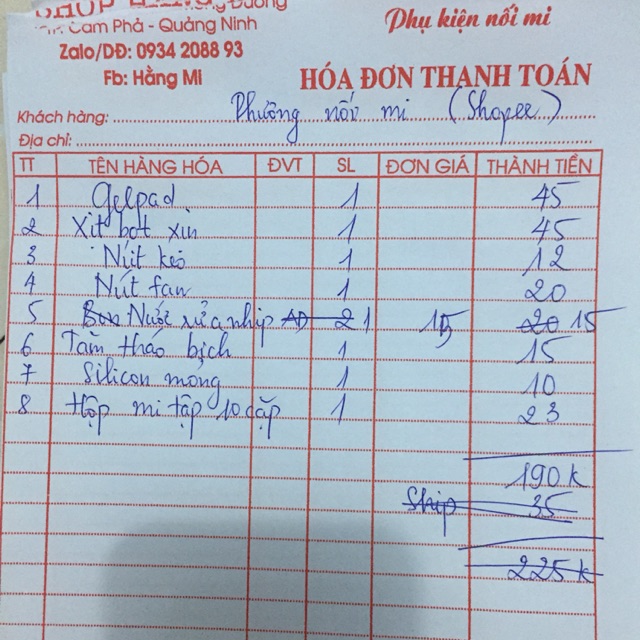 SHOP
Cẩm Phả - Quảng Ninh
Zalo/DĐ: 0934 2088 93
Fb: Hằng Mi
Phụ kiện nối mi
HÓA ĐƠN THANH TOÁN
Khách hàng: Phường nối mi (Shopee)
Địa chỉ:
TT TÊN HÀNG HÓA ĐVT SL ĐƠN GIÁ THÀNH TIỀN
1 Gelpad 1 45
2 Xịt bọt xịn 1 45
3 Nút keo 1 12
4 Nút fan 1 20
5 Nước rửa nhíp AD 2 1 15 20 15
6 Tăm tháo bịch 1 15
7 Silicon mỏng 1 10
8 Hộp mi tập 10 cặp 1 23
190k
Ship 35
225k